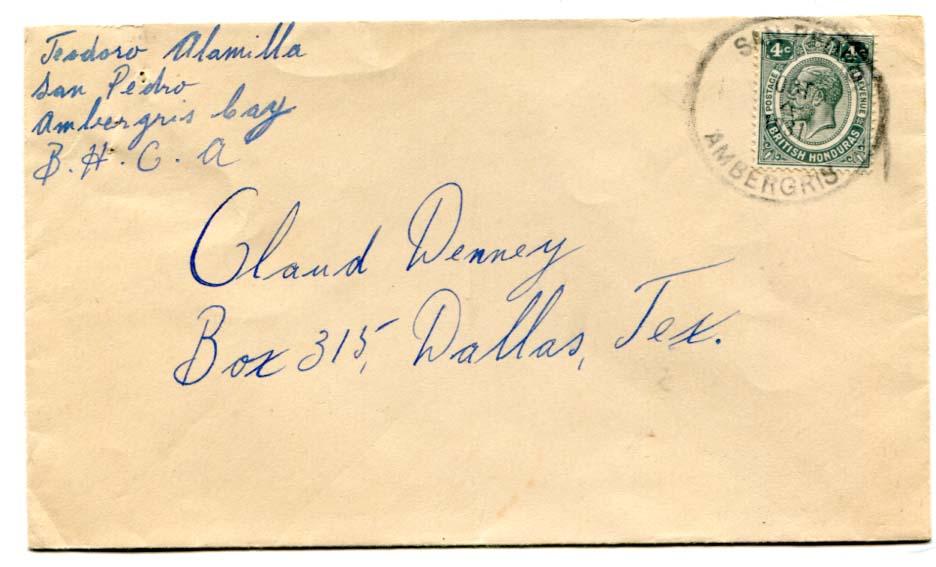 Teodoro Alamilla
San Pedro
Ambergris Cay
B.H.C.A
SAN PEDRO
AMBERGRIS
4c 4c
POSTAGE REVENUE
BRITISH HONDURAS
Claud Denney
Box 315, Dallas, Tex.